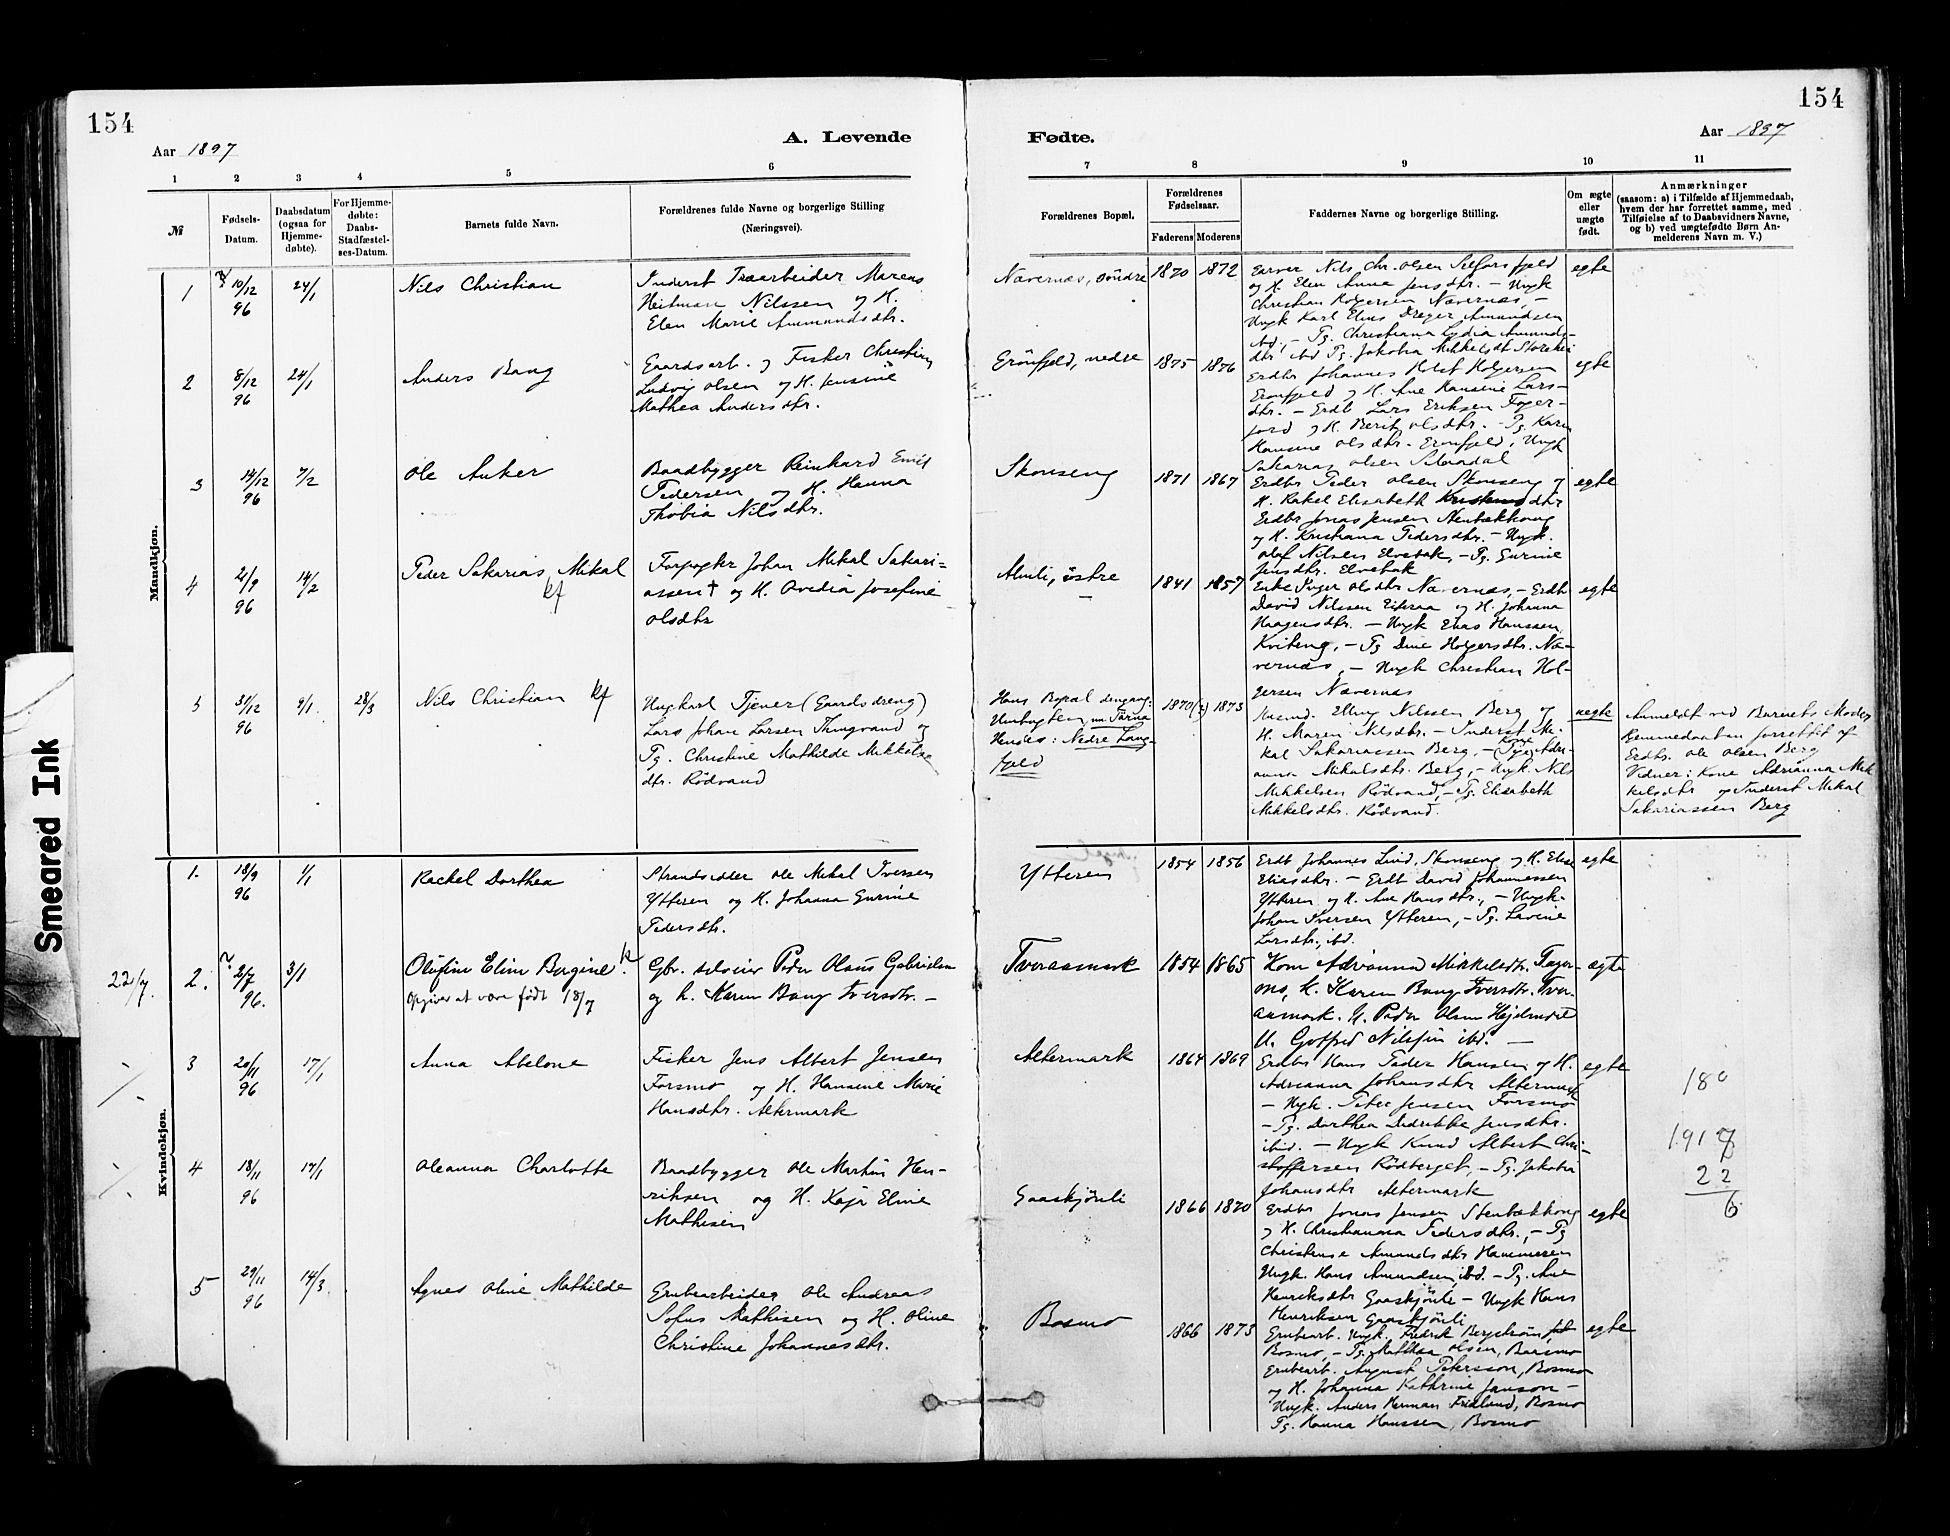 154
154
A. Levende
Fødte.
Aar 1897
Aar 1897
1 2 3 4 5 6
7 8 9 10 11
№
Fødsels-
Datum.
Daabsdatum
(ogsaa for
Hjemme-
døbte).
For Hjemme-
døbte:
Daabs-
Stadfæstel-
ses-Datum.
Barnets fulde Navn.
Forældrenes fulde Navne og borgerlige Stilling
(Næringsvei).
Forældrenes Bopæl.
Forældrenes
Fødselsaar.
Faderens
Moderens
Faddernes Navne og borgerlige Stilling.
Om ægte
eller
uægte
født.
Anmærkninger
(saasom: a) i Tilfælde af Hjemmedaab,
hvem der har forrettet samme, med
Tilføielse af to Daabsvidners Navne,
og b) ved uægtefødte Børn An-
melderens Navn m. V.)
Mandkjøn.
1
10/12
96
24/1
Nils Christian
Inderst Træarbeider
Heitman Nilssen og H.
Elen Marie Ammundsdtr.
Nævernæs, söndre
1870
1872
Nils Chr. Olsen
og H. Elen Anna Jensdtr. – Ungk
Christian Holgersen Nævernæs, –
Ungk Karl Elius Amundsen
ibd, – Pg. Christiana Lydia Amunds-
dtr ibd Pg. Jakobia Mikkelsdt
egte
2
8/12
96
24/1
Anders Bang
Gaardsarb. og Fisker Christian
Ludvig Olsen og H. Jensine
Mathea Andersdtr.
Grönfjeld, nedre
1875
1876
Erdbr Johannes Holst Holgersen
Grönfjeld og H. Ane Hansine Lars-
dtr. – Erdb Lars Eriksen Fager-
jord og H. Berit Olsdtr. – Pg. Karen
Hansine Olsdtr. Grönfjeld, Ungk
Sakarias Olsen
egte
3
14/12
96
7/2
Ole Anker
Baadbygger Reinhard Emil
Pedersen og H. Hanna
Thobia Nilsdtr.
Skonseng
1871
1867
Erdbr Peder Olsen Skonseng og
H. Rakel Elisabeth dtr
Erdbr Jonas Jensen Stenbækhaug
og H. Kristiana Pedersdtr. – Ungk.
Olaf Nilsen Elvebak, – Pg. Gurine
Jensdtr. Elvebak
egte
4
21/9
96
14/2
Peder Sakarias Mikal
Forpagter Johan Mikal Sakari-
assen † og H. Ovedia Josefine
Olsdtr
Almli, östre
1841
1857
Enke Inger Olsdtr Nævernæs, – Erdb
David Nilssen og H. Johanna
Haagensdtr. – Ungk Elias Hanssen
Kviteng, – Pg Dine Holgersdtr. Næ-
vernæs, – Ungk Christian Hol-
gersen Nævernæs
egte
5
31/12
96
9/1.
28/3
Nils Christian
Ungkarl Tjener (Gaardsdreng)
Lars Johan Larsen Tängvand og
Pg. Christine Mathilde Mikkels-
dtr. Rödvand
Hans Bopæl dengang:
Umbugten nu Tärna
Hendes: Nedre Lang-
fjeld
1870 (?)
1873
Elling Nilssen Berg og
H. Maren Nilsdtr. – Inderst Mi-
kal Sakariassen Berg, – Kone Adri-
anna Mikalsdtr. Berg, – Ungk. Nils
Mikkelsen Rödvand, – Pg. Elisabeth
Mikkelsdtr. Rödvand.
uegte
Anmeldt ved Barnets Moder
Hemmedaaben forrettet af
Erdbr. Ole Olsen Berg
Vidner: Kone Adrianna Mik
kelsdtr og Inderst Mikal
Sakariassen Berg
Kvindekjøn.
1.
18/9
96
1/1
Rachel Dorthea
Strandsidder Ole Mikal Iversen
Ytteren og H. Johanna Gurine
Pedersdtr.
Ytteren
1854
1856
Erdb Johannes Lind, Skonseng og H. Elen
Eliasdtr. – Erdb David Johannessen
Ytteren og H. Ane Hansdtr., – Ungk.
Johan Iversen Ytteren, – Pg. Lavine
Larsdtr. ibd.
egte
22/7.
2.
2/7
96.
3/1
Olufine Eline Bergine
Opgiver at være født 18/7
Gbr. Peder Olaus Gabrielsen
og h. Karen Bang Iversdtr. –
Tveraamark
1854
1865
Kone Adrianna Mikkelsdtr. Fager-
mo, K. Karen Bang Iversdtr. Tver-
aamark. U. Peder Olsen
U. Gotfred Nilssen ibd. –
ægte
3
20/11
96
17/1
Anna Abelone
Fisker Jens Albert Jensen
Forsmo og H. Hansine Marie
Hansdtr. Altermark
Altermark
1864
1869
Erdbr Hans Peder Hansen og H.
Adrianna Johansdtr Altermark
– Ugk. Peter Jensen Forsmo
– Pg. Dorthea Didrikke Jensdtr.
ibid. – Ungk Knud Albert Chri-
stoffersen Rödberget, – Pg. Jakobia
Johansdtr Altermark
egte
180
1917
22
6
4
18/11
96
17/1
Oleanna Charlotte
Baadbygger Ole Martin Hen-
riksen og H. Kaja Eline
Mathisen
Gaaskjönli
1866
1870
Erdbr Jonas Jensen Stenbækhaug
og H. Christianna Pedersdtr., – Pg
Christense Amundsdtr Hammeren
Ungk. Hans Amundsen, ibd. – Pg. Ane
Henriksdtr Gaaskjönli – Ungk Hans
Henriksen Gaaskjönli
egte
5
29/11
96
14/3.
Agnes Oline Mathilde
Grubearbeider Ole Andreas
Sofus Mathisen og H. Oline
Christine Johannesdtr.
Bosmo
1866
1873
Grubearb. Ungk. Fredrik Bergström
Bosmo, – Pg. Mathea Olsen, Bosmo
Grubearb. August Petersson, Bosmo
og H. Johanna Kathrine Janson –
Ungk. Anders Herman Fridlund, Bosmo
Pg. Hanna Hanssen, Bosmo
egte
Smeared Ink